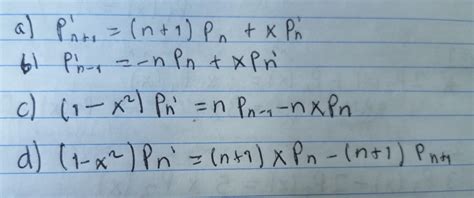 a) P'n+1 = (n+1) Pn + x Pn'
b) P'n-1 = -n Pn + x Pn'
c) (1-x²) Pn' = n Pn-1 - n x Pn
d) (1-x²) Pn' = (n+1) x Pn - (n+1) Pn+1